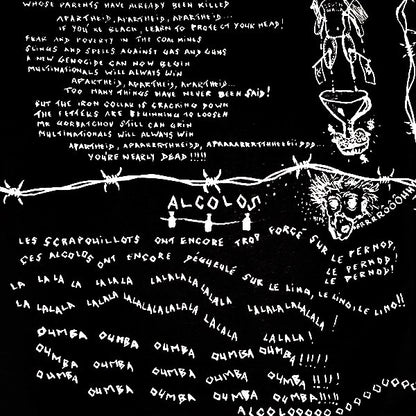 WHOSE PARENTS HAVE ALREADY BEEN KILLED
APARTHEID, APARTHEID, APARTHEID...
IF YOU'RE BLACK, LEARN TO PROTECT YOUR HEAD!
FEAR AND POVERTY IN THE COAL MINES
SLINGS AND SPELLS AGAINST GAS AND GUNS
A NEW GENOCIDE CAN NOW BEGIN
MULTINATIONALS WILL ALWAYS WIN
APARTHEID, APARTHEID, APARTHEID...
TOO MANY THINGS HAVE NEVER BEEN SAID!
BUT THE IRON COLLAR IS CRACKING DOWN
THE FETTERS ARE BEGINNING TO LOOSEN
MR GORBATCHOV STILL CAN GRIN
MULTINATIONALS WILL ALWAYS WIN
APARTHEID, APARRRRTHHEIDD, APAAAARRRRTHHHEEGIIDDD...
YOU'RE NEARLY DEAD !!!!!
RRRRROGOOO
ALCOLOS
LES SCRAPOUILLOTS ONT ENCORE TROP FORCÉ SUR LE PERNOD,
LE PERNOD!
LE PERNOD!
CES ALCOLOS ONT ENCORE DÉGUEULÉ SUR LE LINO, LE LINO LE LINO!!
LA LA LA LA LALALA LALALALALALA
LA LALALA LALA LALALALALALALA LALALA LALALALALALA !
LALALA !
OUMBA OUMBA OUMBA OUMBA OUMBA !!!!!
OUMBA OUMBA OUMBA OUMBA OUMBA !!!!!
OUMBA OUMBA OUMBA OUMBA OUMBA!!!!!
ALCOLOOOOO